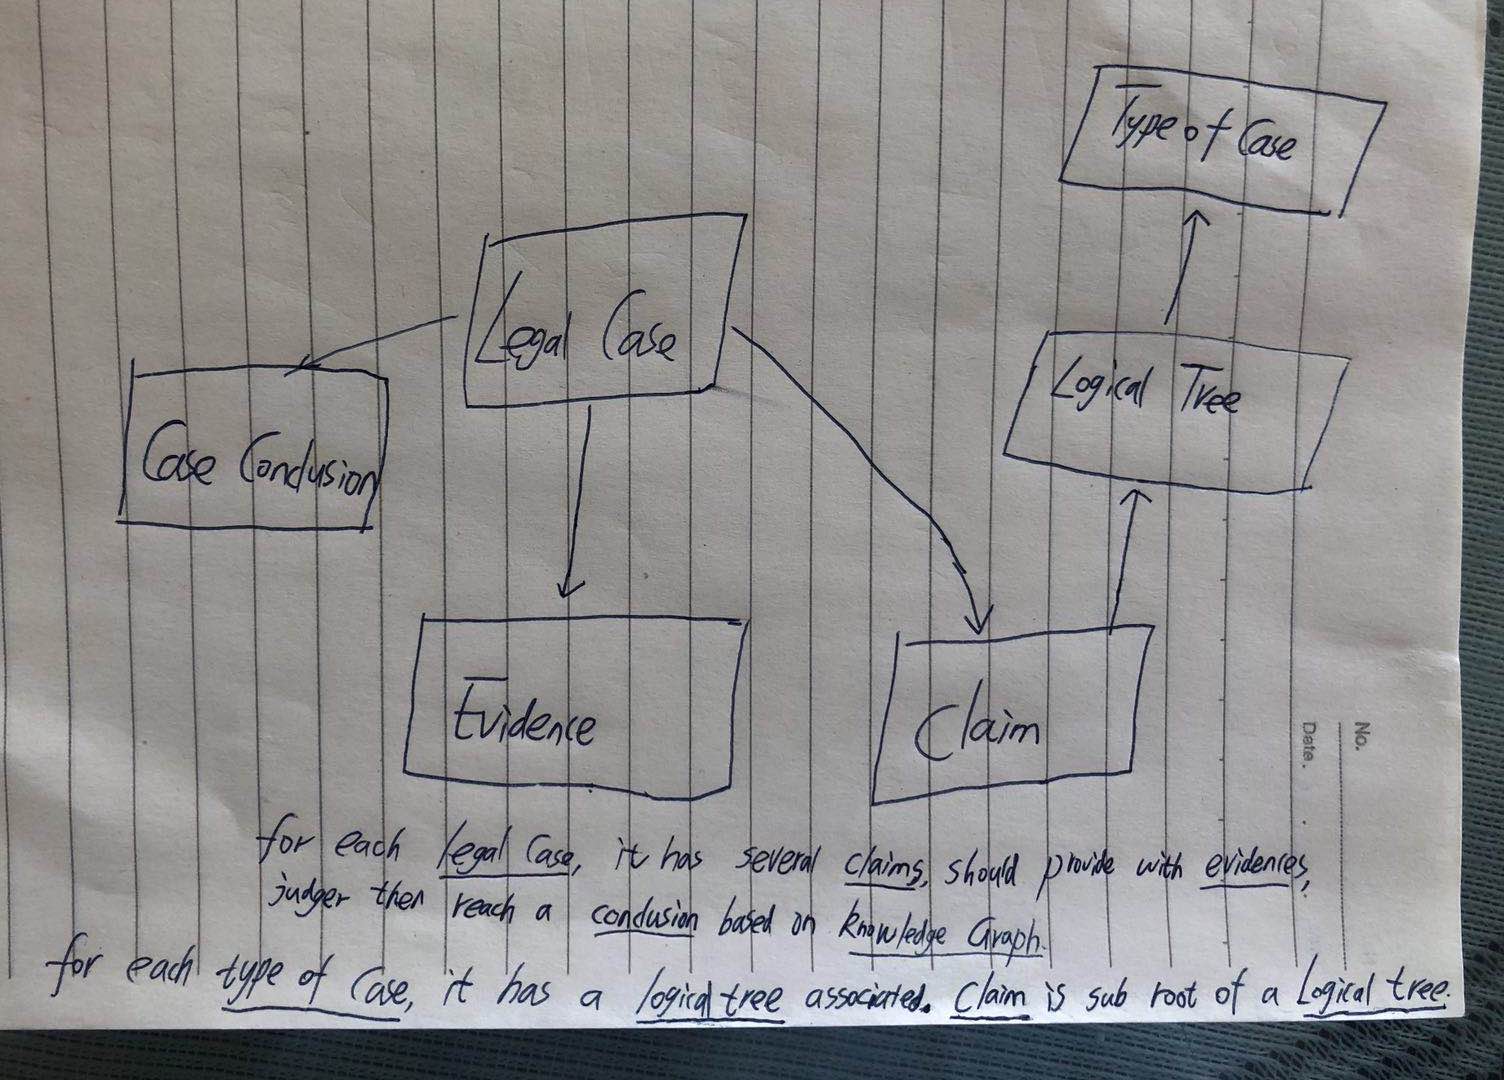 Type of Case
Legal Case
Logical Tree
Case Conclusion
Evidence
Claim
No.
Date.
for each legal Case, it has several claims, should provide with evidences,
judger then reach a conclusion based on knowledge Graph.
for each type of Case, it has a logical tree associated. Claim is sub root of a Logical tree.